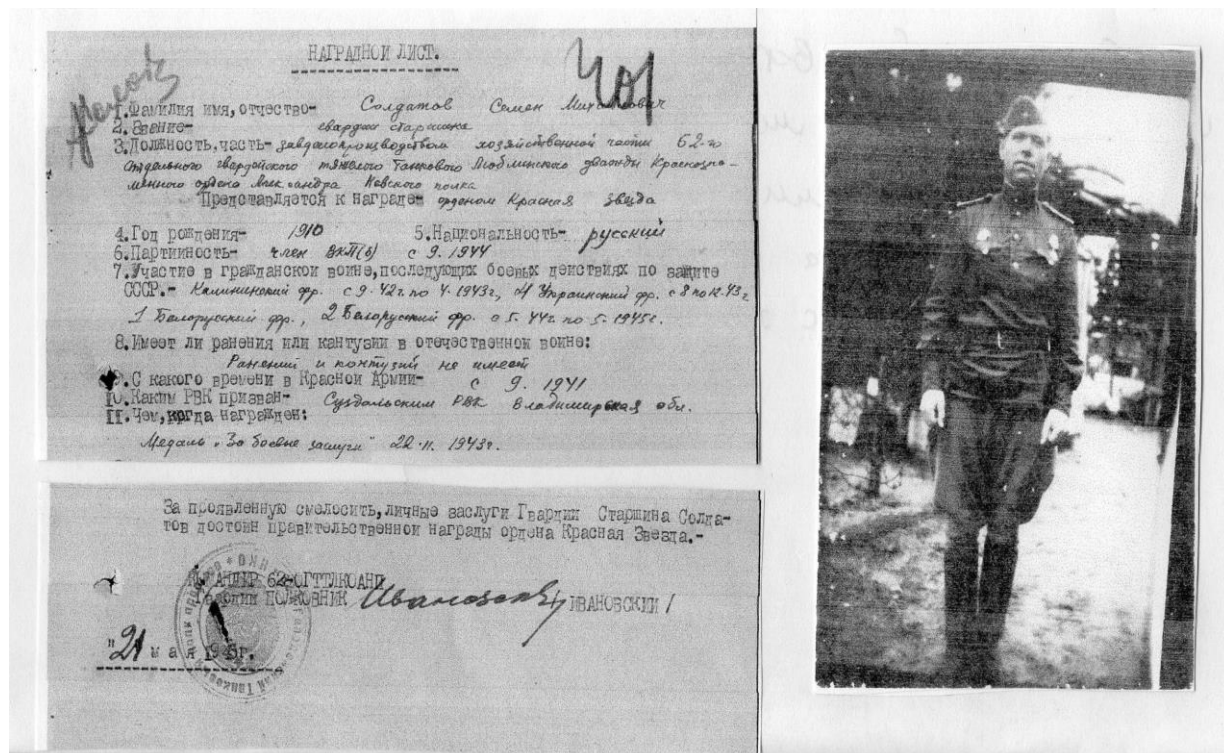 НАГРАДНОЙ ЛИСТ.
401
1.Фамилия имя,отчество- Солдатов Семен Михайлович
2.Звание- гвардии старшина
3.Должность,часть- завделопроизводством хозяйственной части 62-го
отдельного гвардейского тяжелого Танкового Люблинского дважды Краснозна-
менного ордена Александра Невского полка
Представляется к награде- орденом Красная Звезда
4.Год рождения- 1910 5.Национальность- русский
6.Партийность- член ВКП(б) с 9.1944
7.Участие в гражданской войне,последующих боевых действиях по защите
СССР.- Калининский фр. с 9-42г. по 4.1943г, 4 Украинский фр. с 8 по 12.43г
1 Белорусский фр., 2 Белорусский фр. с 5.44г. по 5.1945г.
8.Имеет ли ранения или кантузии в отечественной воине:
Ранений и контузий не имеет
9.С какого времени в Красной Армии- с 9.1941
10.Каким РВК призван- Суздальским РВК Владимирская обл.
11.Чем,когда награжден:
Медаль "За боевые заслуги" 22.11.1943г.
За проявленную смелосить,личные заслуги Гвардии Старшина Солда-
тов достоин правительственной награды ордена Красная Звезда.-
КОМАНДИР 62-ОГТТЛКОАНП
Гвардии ПОЛКОВНИК /ИВАНОВСКИЙ/
"21 мая 1945г.